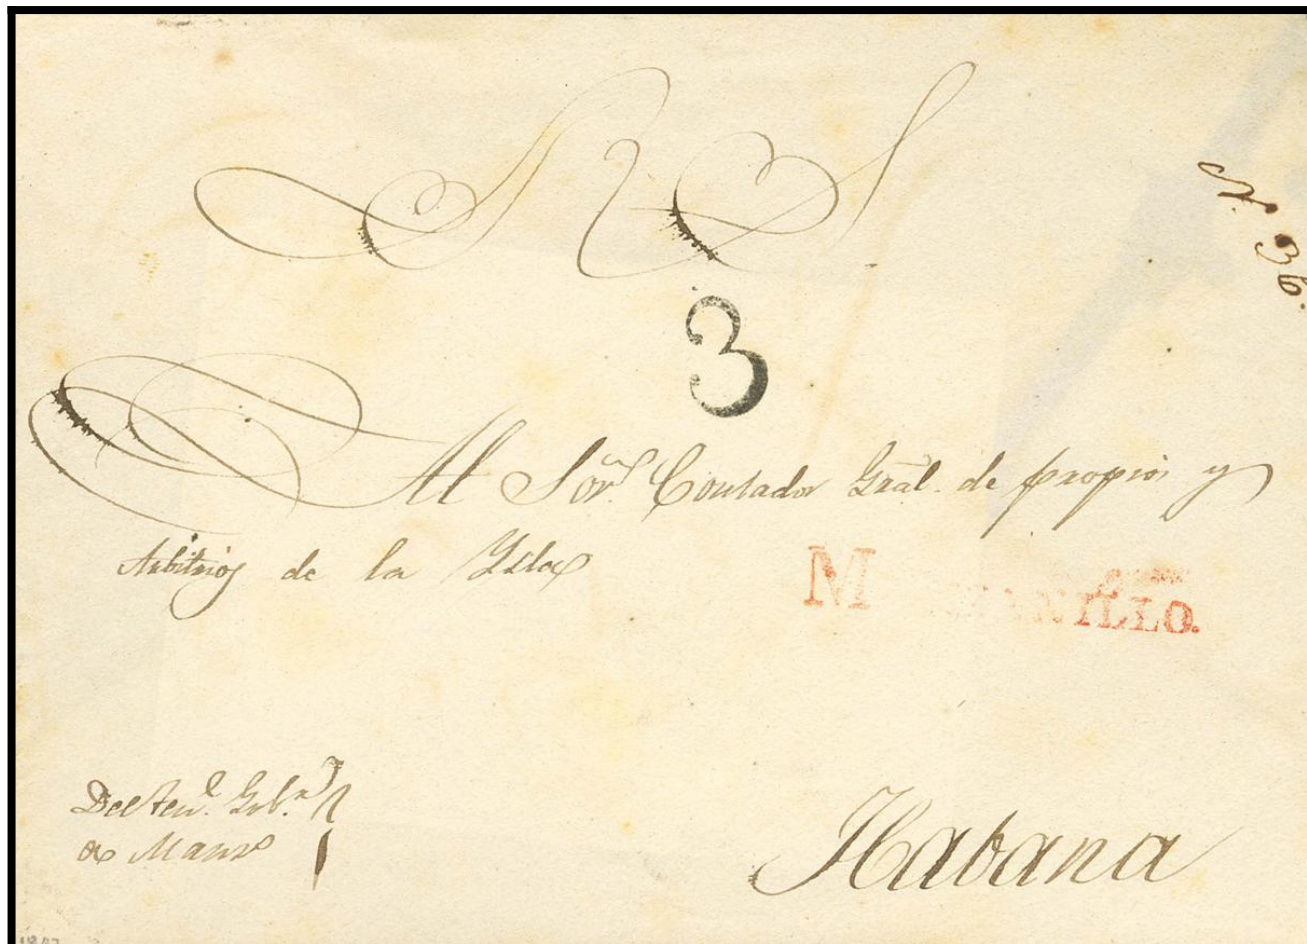 R S
N. 36.
3
Al Sor. Contador Gral. de propios y
Arbitrios de la Ysla
MANZANILLO.
Del Ten.e Gob.r
de Manz.o
Habana